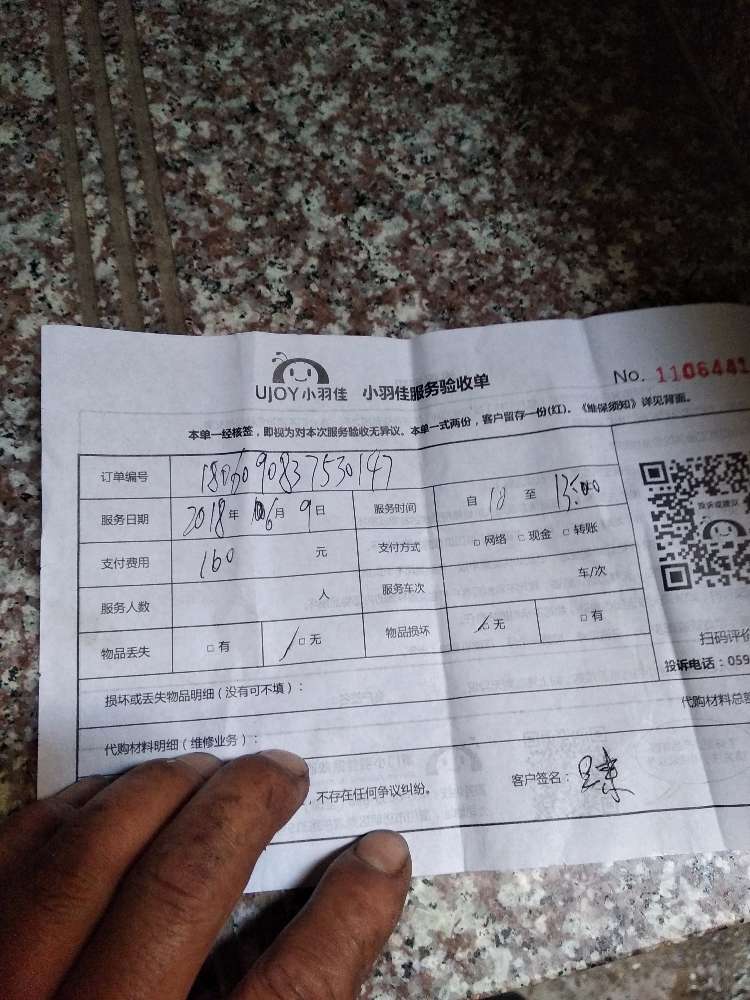 UJOY小羽佳 小羽佳服务验收单 No. 1106441
本单一经核签，即视为对本次服务验收无异议。本单一式两份，客户留存一份(红)。《维保须知》详见背面。
订单编号
服务日期 2018年 6月 9日 服务时间 自 至
支付费用 160 元 支付方式 □ 网络 □ 现金 □ 转账
服务人数 人 服务车次 车/次
物品丢失 □ 有 □ 无 物品损坏 □ 无 □ 有
投诉或建议
扫码评价
投诉电话：059
损坏或丢失物品明细（没有可不填）：
代购材料总
代购材料明细（维修业务）：
，不存在任何争议纠纷。 客户签名：